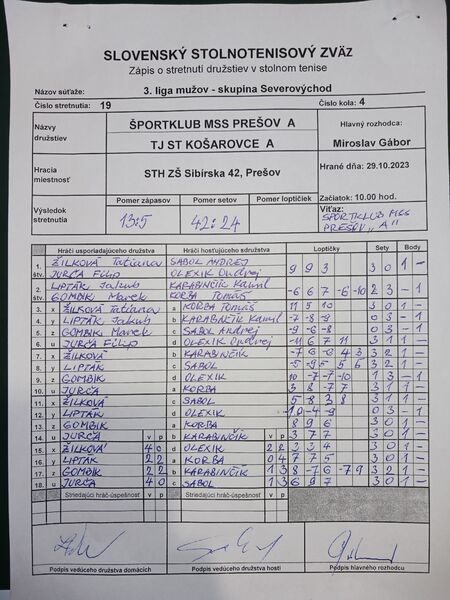 SLOVENSKÝ STOLNOTENISOVÝ ZVÄZ
Zápis o stretnutí družstiev v stolnom tenise
Názov súťaže: 3. liga mužov - skupina Severovýchod
Číslo stretnutia: 19 Číslo kola: 4
Názvy družstiev ŠPORTKLUB MSS PREŠOV A Hlavný rozhodca:
TJ ST KOŠAROVCE A Miroslav Gábor
Hracia miestnosť STH ZŠ Sibírska 42, Prešov Hrané dňa: 29.10.2023
Začiatok: 10.00 hod.
Výsledok stretnutia Pomer zápasov Pomer setov Pomer loptičiek Víťaz:
13:5 42:24 ŠPORTKLUB MSS
PREŠOV "A"
Hráči usporiadajúceho družstva Hráči hosťujúceho družstva Loptičky Sety Body
1. štv. ŽILKOVÁ Tatiana SABOL ANDREJ 9 9 3 3 0 1 -
JURČA Filip OLEXIK Ondrej
2. štv. LIPTÁK Jakub KARABINČÍK Kamil -6 6 7 -6 -10 2 3 - 1
GOMBIK Marek KORBA Tomáš
3. x ŽILKOVÁ Tatiana a KORBA Tomáš 11 5 10 3 0 1 -
4. y LIPTÁK Jakub b KARABINČÍK Kamil -7 -8 -9 0 3 - 1
5. z GOMBIK Marek c SABOL Andrej -9 -6 -8 0 3 - 1
6. u JURČA Filip d OLEXIK Ondrej -11 6 7 11 3 1 1 -
7. x ŽILKOVÁ b KARABINČÍK -7 6 -3 4 3 3 2 1 -
8. y LIPTÁK c SABOL -5 -9 5 5 6 3 2 1 -
9. z GOMBIK d OLEXIK 10 -7 -7 -10 1 3 - 1
10. u JURČA a KORBA 3 8 -7 7 3 1 1 -
11. x ŽILKOVÁ c SABOL 5 8 3 8 3 1 1 -
12. y LIPTÁK d OLEXIK -10 -4 -9 0 3 - 1
13. z GOMBIK a KORBA 8 9 6 3 0 1 -
14. u JURČA v p b KARABINČÍK v p 3 7 7 3 0 1 -
15. x ŽILKOVÁ 4 0 d OLEXIK 2 2 3 3 4 3 0 1 -
16. y LIPTÁK 2 2 a KORBA 0 4 7 7 5 3 0 1 -
17. z GOMBIK 2 2 b KARABINČÍK 1 3 8 -7 6 -7 9 3 2 1 -
18. u JURČA 4 0 c SABOL 1 3 6 9 7 3 0 1 -
Striedajúci hráč-úspešnosť v p Striedajúci hráč-úspešnosť v p
Podpis vedúceho družstva domácich Podpis vedúceho družstva hostí Podpis hlavného rozhodcu